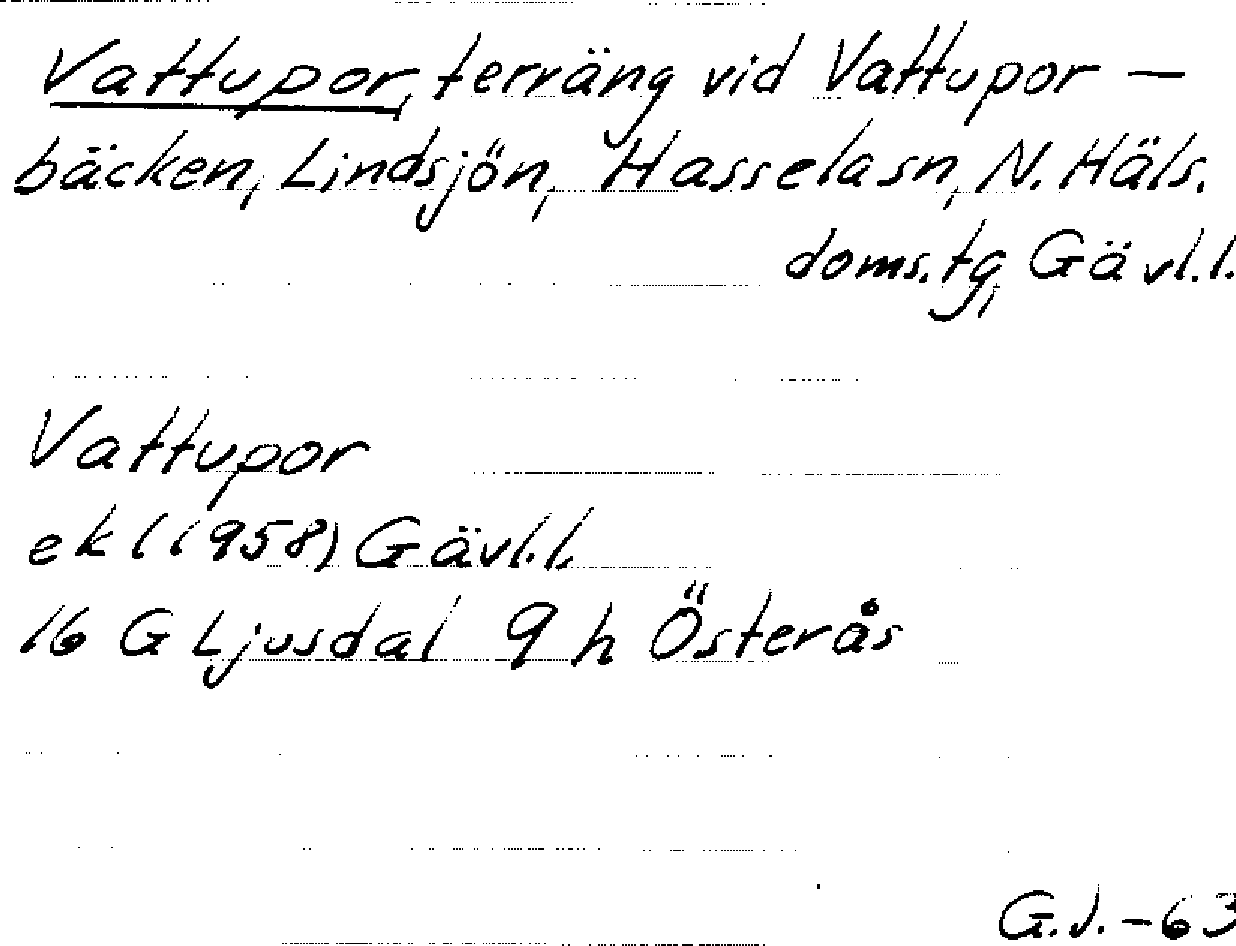 Vattupor, terräng vid Vattupor –
bäcken, Lindsjön, Hassela sn, N. Häls.
doms.tg, Gävl.l.
Vattupor
ek (1958) Gävl.l.
16 G Ljusdal 9 h Österås
G.J. -63